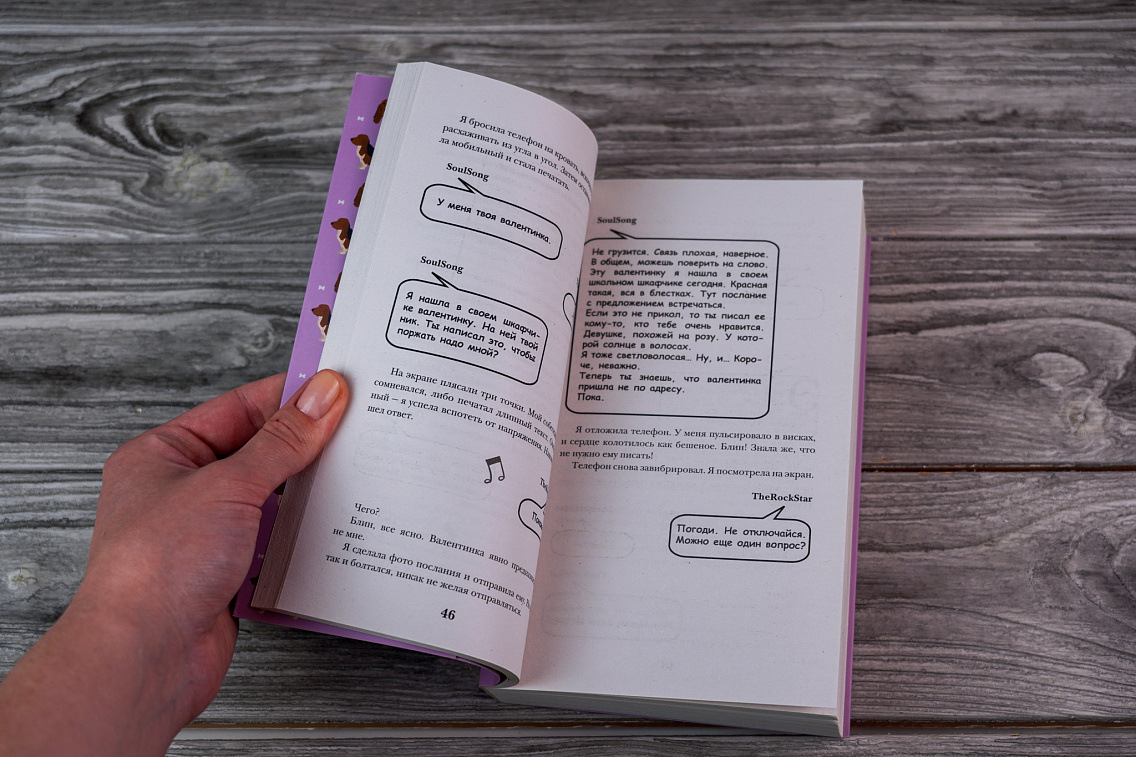 Я бросила телефон на кровать,
расхаживать из угла в угол. Затем
ла мобильный и стала печатать.
SoulSong
У меня твоя валентинка.
SoulSong
Я нашла в своем шкафчи-
ке валентинку. На ней твой
ник. Ты написал это, чтобы
поржать надо мной?
На экране плясали три точки. Мой
сомневался, либо печатал длинный текст.
ный — я успела вспотеть от напряжения.
шел ответ.
Чего?
Блин, все ясно. Валентинка явно
не мне.
Я сделала фото послания и отправила ему.
так и болтался, никак не желая отправляться.
46
SoulSong
Не грузится. Связь плохая, наверное.
В общем, можешь поверить на слово.
Эту валентинку я нашла в своем
школьном шкафчике сегодня. Красная
такая, вся в блестках. Тут послание
с предложением встречаться.
Если это не прикол, то ты писал ее
кому-то, кто тебе очень нравится.
Девушке, похожей на розу. У кото-
рой солнце в волосах.
Я тоже светловолосая... Ну, и... Коро-
че, неважно.
Теперь ты знаешь, что валентинка
пришла не по адресу.
Пока.
Я отложила телефон. У меня пульсировало в висках,
и сердце колотилось как бешеное. Блин! Знала же, что
не нужно ему писать!
Телефон снова завибрировал. Я посмотрела на экран.
TheRockStar
Погоди. Не отключайся.
Можно еще один вопрос?